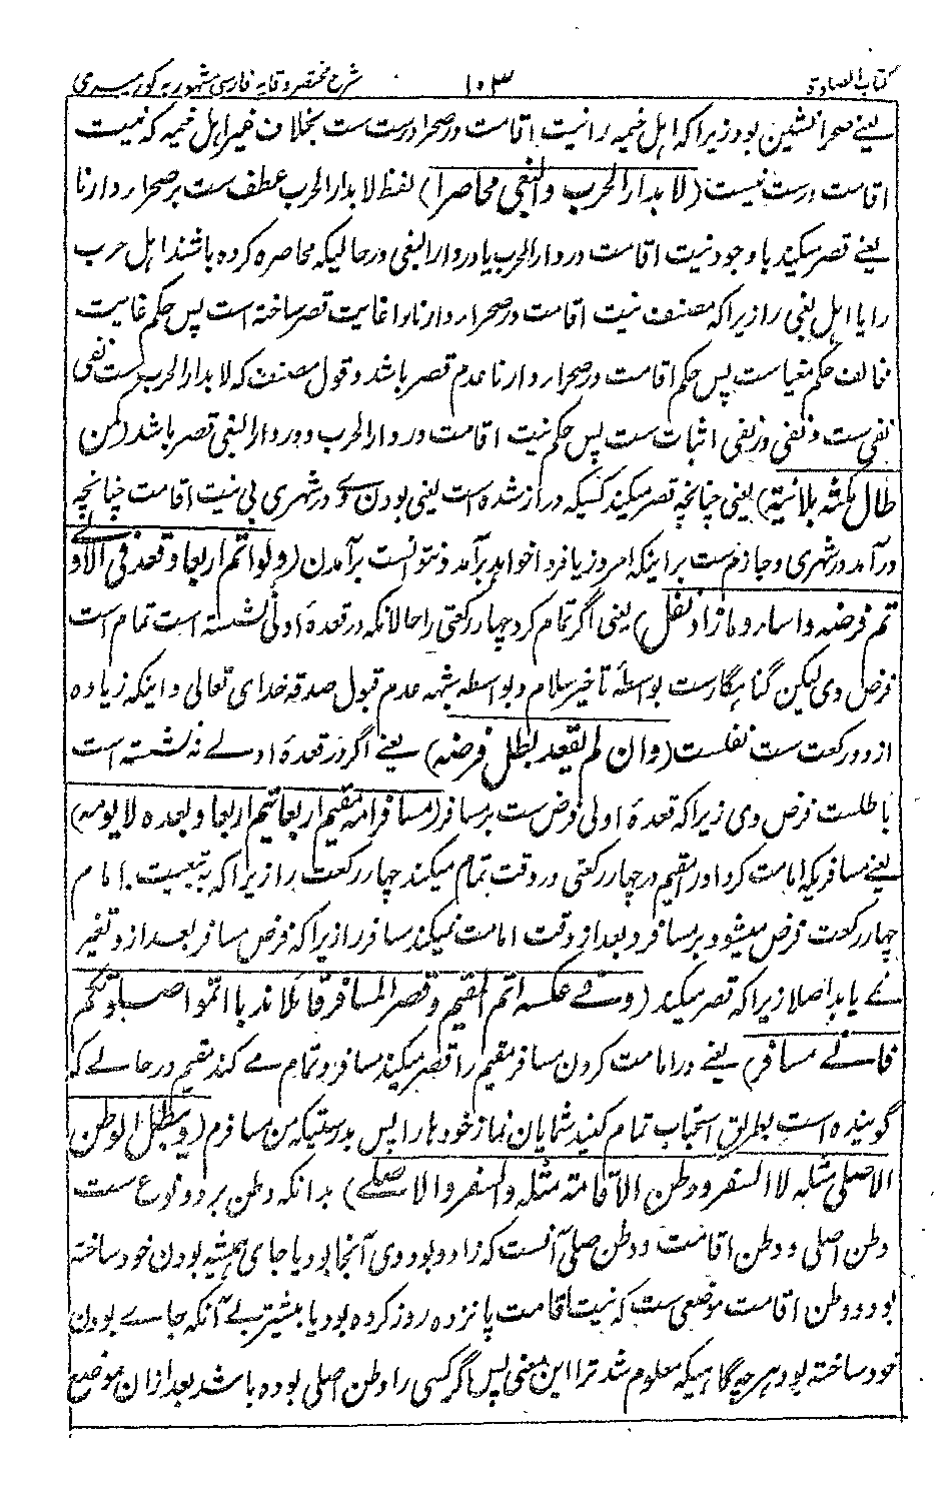 کتاب الصلوة ۱۰۳ شرح مختصر وقایه فارسی مشهور به کور میدی
یعنے صحرا نشین بود زیرا که اهل خیمه را نیت اقامت در صحرا درست ست بخلاف غیر اهل خیمه که نیت
اقامت درست نیست (لا بدار الحرب والبغی محاصرا) لفظ لا بدار الحرب عطف ست بر صحرا دارنا
یعنے قصر میکند با وجود نیت اقامت در دار الحرب یا در دار البغی در حالیکه محاصره کرده باشند اهل حرب
را یا اهل بغی را زیرا که مصنف نیت اقامت در صحرا دارنا را غایت قصر ساخته است پس حکم غایت
مخالف حکم مغیاست پس حکم اقامت در صحرا دارنا عدم قصر باشد و قول مصنف که لا بدار الحرب ست نفی
نفی ست و نفی در نفی اثبات ست پس حکم نیت اقامت در دار الحرب و در دار البغی قصر باشد (کمن
طال مکثه بلا نیة) یعنی چنانچه قصر میکند کسیکه دراز شده است یعنی بودن وے در شهری بی نیت اقامت چنانچه
درآمد در شهری و جازم ست بر اینکه امروز یا فردا خواهد برآمد و نتوانست برآمدن (ولو اتم اربعا وقعد فی الاولے
تم فرضه واساء وما زاد نفل) یعنی اگر تمام کرد چهار رکعتی را حالانکه در قعدهٔ اولی نشسته است تمام است
فرض وی لیکن گناهگارست بواسطهٔ تاخیر سلام و بواسطه شبهه عدم قبول صدقه خدای تعالی و اینکه زیاده
از دو رکعت ست نفلست (وان لم یقعد بطل فرضه) یعنے اگر در قعدهٔ اولے نه نشسته است
باطلست فرض وی زیرا که قعدهٔ اولی فرض ست بر مسافر (مسافر امه مقیم اربعا یتم اربعا و بعده لا یومه)
یعنے مسافریکه امامت کرد اورا مقیم در چهار رکعتی در وقت تمام میکند چهار رکعت را زیرا که به تبعیت امام
چهار رکعت فرض میشود بر مسافر و بعد از وقت امامت نمیکند مسافر را زیرا که فرض مسافر بعد از وقت تغیر
نے یابد اصلا زیرا که قصر میکند (وفے عکسه اتم المقیم وقصر المسافر قائلا ندبا اتموا صلوتکم
فانے مسافر) یعنے در امامت کردن مسافر مقیم را قصر میکند مسافر و تمام مے کند مقیم در حالے که
گوینده است بطریق استحباب تمام کنید شمایان نماز خود ها را پس بدرستیکه من مسافرم (ویبطل الوطن
الاصلی مثله لا السفر ووطن الاقامة مثله والسفر والاصلے) بدانکه وطن بر دو نوع ست
وطن اصلی و وطن اقامت و وطن اصلی آنست که زاد و بود وی آنجا بود یا جای همیشه بودن خود ساخته
بود و وطن اقامت موضعی ست که نیت اقامت پانزده روز کرده بود یا بیشتر بے آنکه جاے بودن
خود ساخته بود هر چگاهیکه معلوم شد ترا این معنی پس اگر کسی را وطن اصلی بوده باشد بعد ازان موضع